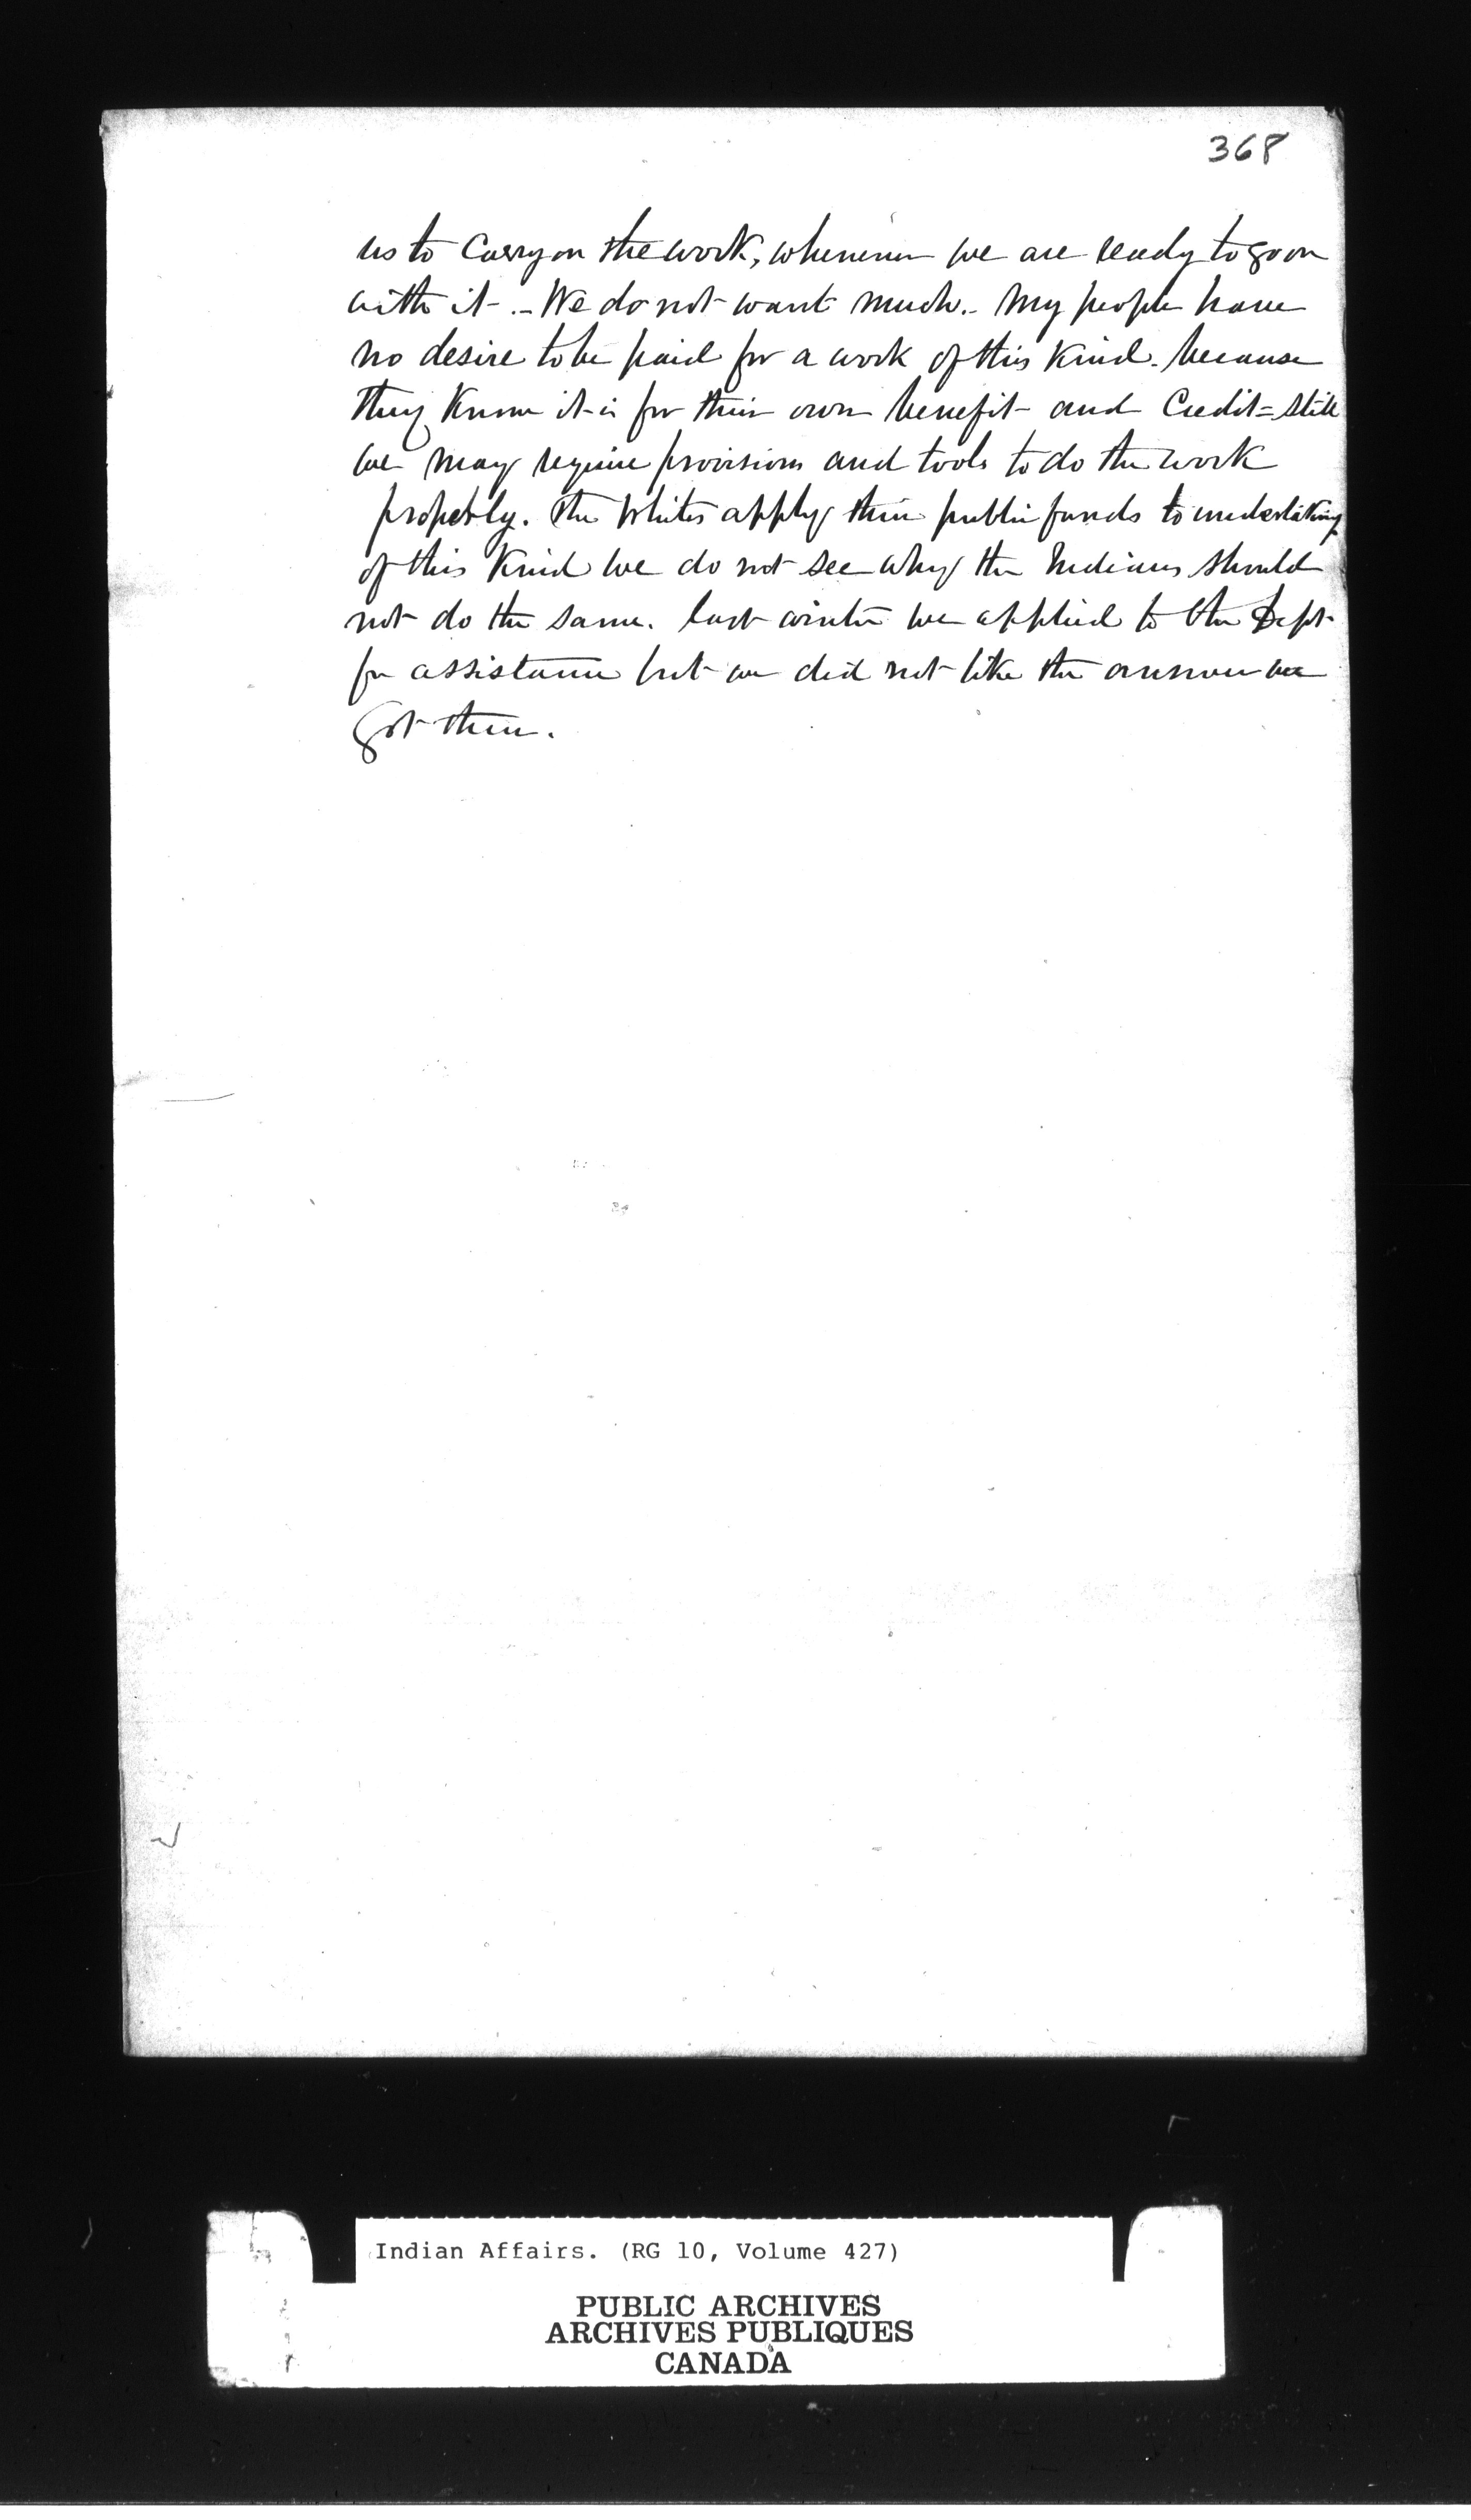 368
us to Carry on the work, whenever we are ready to go on
with it - . - We do not want much. - My people have
no desire to be paid for a work of this Kind. because
they Know it is for their own benefit - and Credit = still
we may require provisions and tools to do the work
properly. The Whites apply their public funds to undertaking
of this Kind we do not see why the Indians should
not do the same. last winter we applied to the Dept.
for assistance but we did not like the answer we
got then.
Indian Affairs. (RG 10, Volume 427)
PUBLIC ARCHIVES
ARCHIVES PUBLIQUES
CANADA